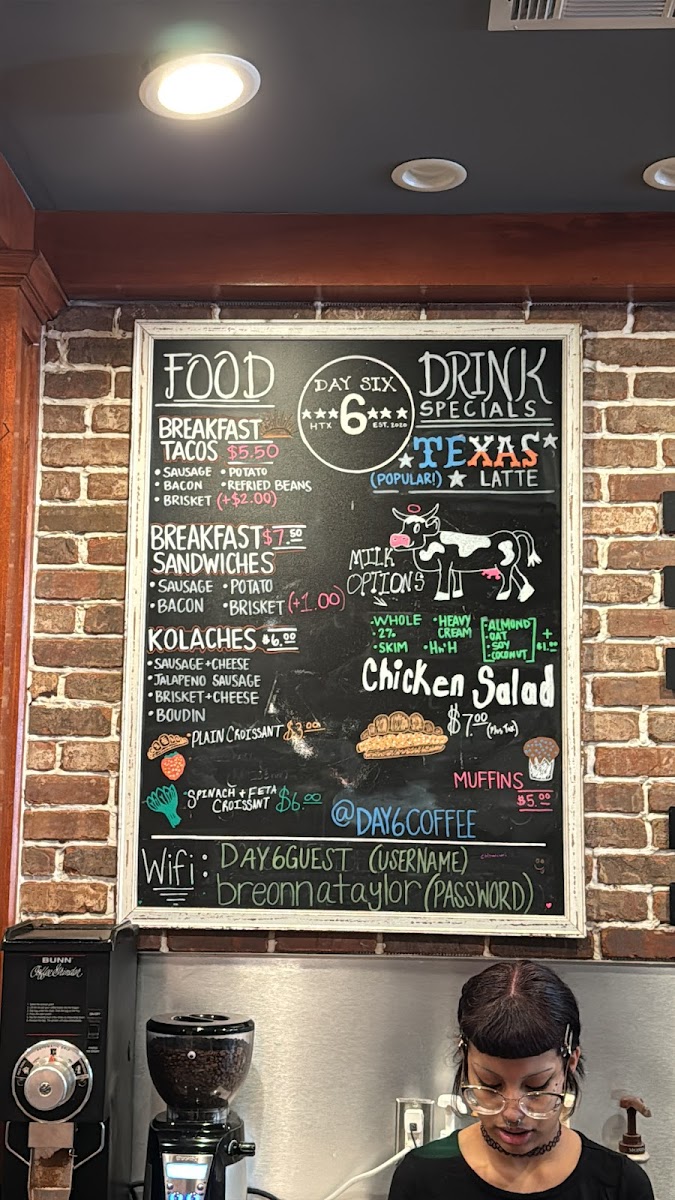 FOOD
BREAKFAST
TACOS $5.50
• SAUSAGE • POTATO
• BACON • REFRIED BEANS
• BRISKET (+$2.00)
BREAKFAST $7.50
SANDWICHES
• SAUSAGE • POTATO
• BACON • BRISKET (+1.00)
KOLACHES $6.00
• SAUSAGE + CHEESE
• JALAPENO SAUSAGE
• BRISKET + CHEESE
• BOUDIN
PLAIN CROISSANT $3.00
SPINACH + FETA
CROISSANT $6.00
DAY SIX
6
HTX EST. 2020
DRINK
SPECIALS
TEXAS
(POPULAR!) LATTE
MILK
OPTIONS
• WHOLE
• 2%
• SKIM
• HEAVY
CREAM
• H n' H
• ALMOND
• OAT
• SOY
• COCONUT
+
$1.00
Chicken Salad
$7.00 (Plus Tax)
MUFFINS
$5.00
@DAY6COFFEE
Wifi: DAY6GUEST (USERNAME)
breonnataylor (PASSWORD)
BUNN
Coffee Grinder